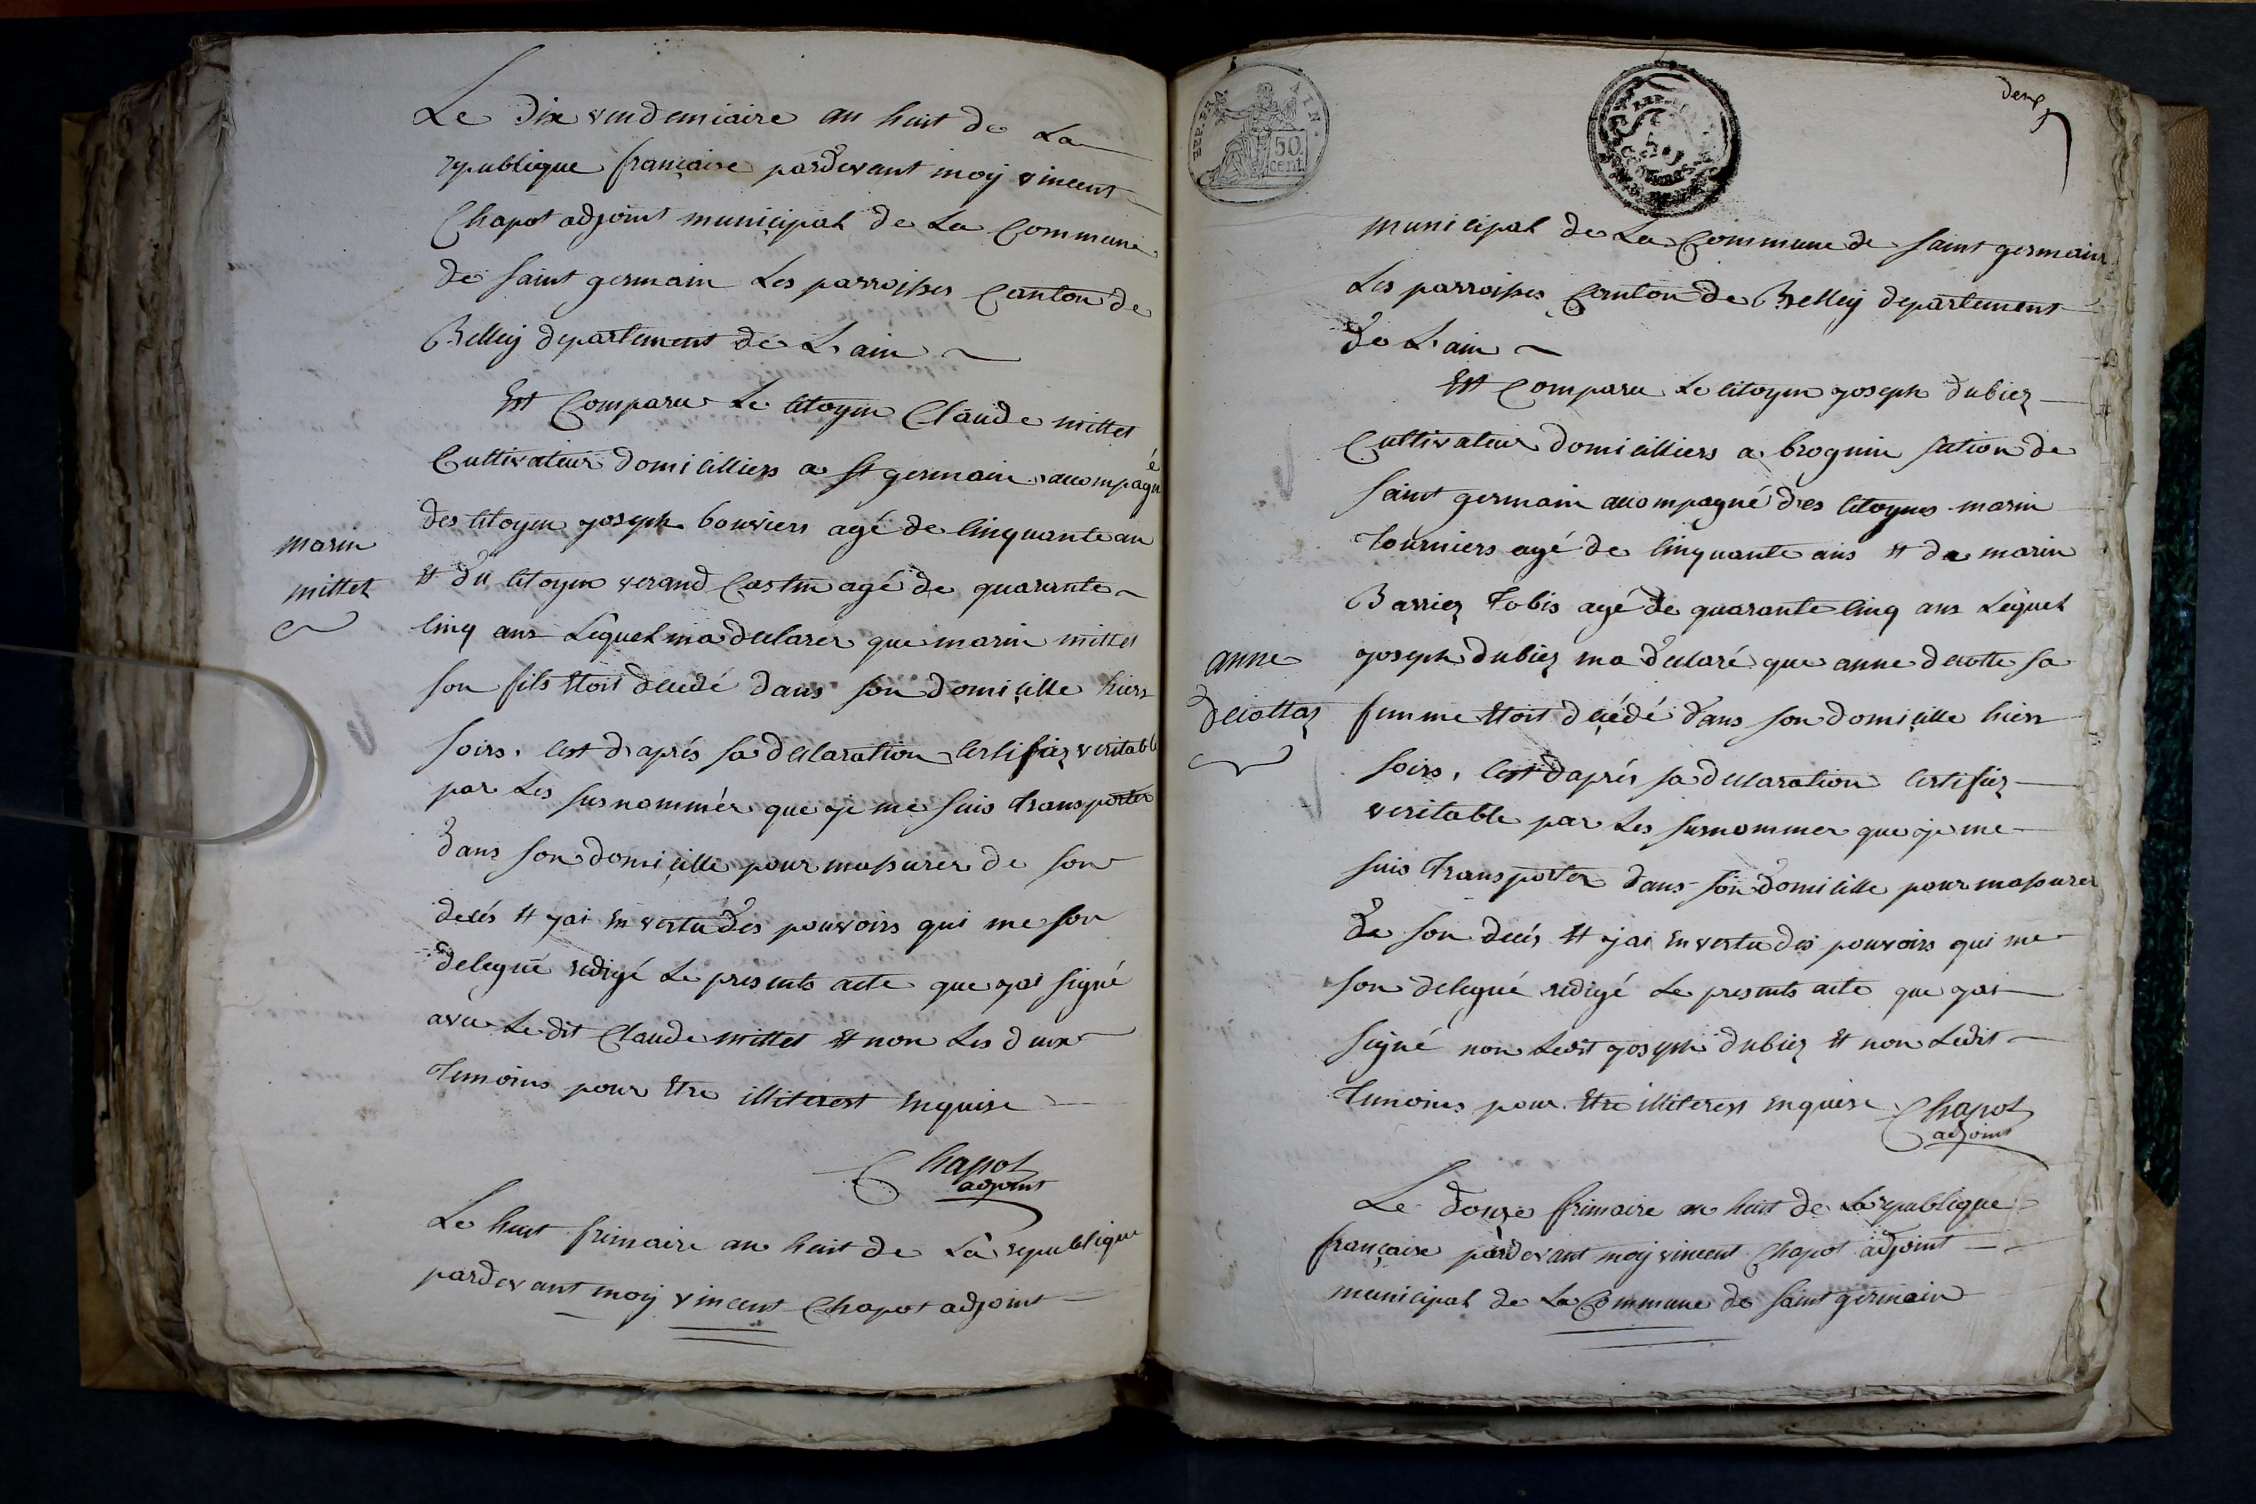 Le dix vendemiaire an huit de La
republique française pardevant moy vincent
Chapot adjoint municipal de La Commune
de saint germain Les parroisses Canton de
Belley departement de L'ain
Est Comparu Le citoyen Claude millet
Cultivateur domicilliers a st germain accompagné
des citoyen joseph bouviers agé de cinquante an
et du citoyen verand Castin agé de quarante
cinq ans Lequel ma declarer que marin millet
son fils etoit decedé dans son domicille hiers
soirs, cest d'aprés sa declaration Certifiez veritable
par Les susnommér que je me suis transporter
dans son domicille pour massurer de son
decés et j'ai en vertu des pouvoirs qui me son
delegué redigé Le presents acte que j'ai signé
avec Le dit Claude millet et non Les deux
temoins pour Etre illiterest enquise
Chapot
adjoint
marin
millet
Le huit frimaire an huit de La republique
pardevant moy vincent Chapot adjoint
REP. FRA.
AIN.
50
cent.
deux
municipal de La Commune de saint germain
Les parroisses Canton de Belley departement
de L'ain
Est Comparu Le citoyen joseph dubiez
Cultivateur domicilliers a brognin section de
saint germain accompagné des citoyens marin
tourniers agé de cinquante ans et de marin
Barriez tobis agé de quarante cinq ans Lequel
joseph dubiez ma declaré que anne decotte sa
femme etoit decédé dans son domicille hier
soirs, cest d'aprés sa declaration certifiez
veritable par Les susnommer que je me
suis transporter dans son domicille pour massurer
de son decés et j'ai en vertu des pouvoirs qui me
son delegué redigé Le presents acte que j'ai
signé non Ledit joseph dubiez et non Ledit
temoins pour Etre illiterest enquise
Chapot
adjoint
anne
decottaz
Le douze frimaire an huit de La republique
française pardevant moy vincent Chapot adjoint
municipal de La Commune de saint germain